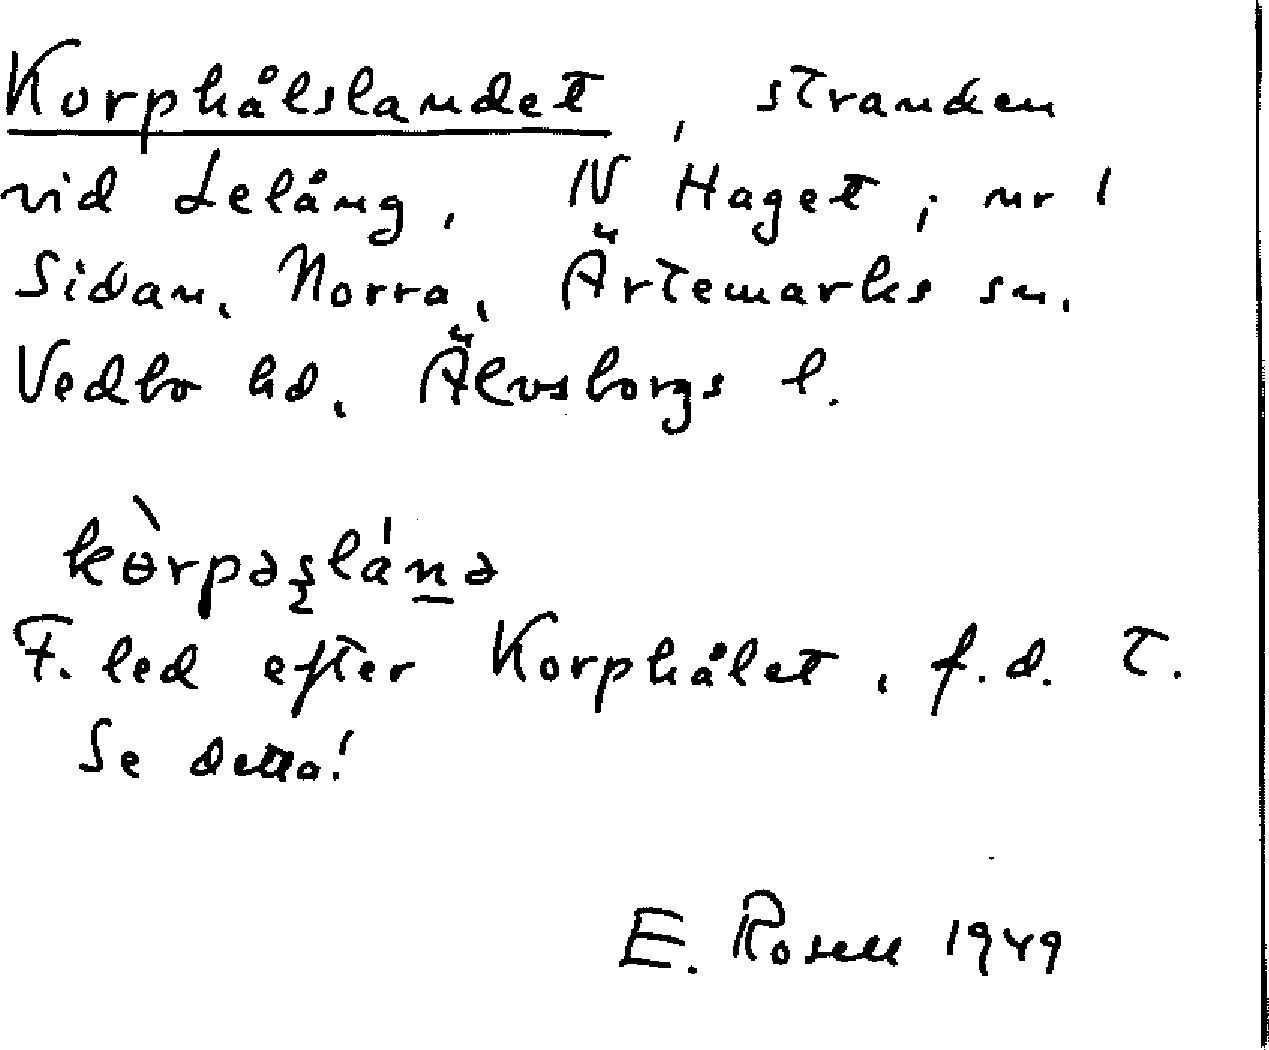 Korphålslandet, stranden
vid Lelång, N Haget, nr 1
Sidan, Norra, Ärtemarks sn,
Vedbo hd, Älvsborgs l.
kɵ̀rpəʂlánə
F. led efter Korphålet, f.d. T.
Se detta!
E. Rosell 1949